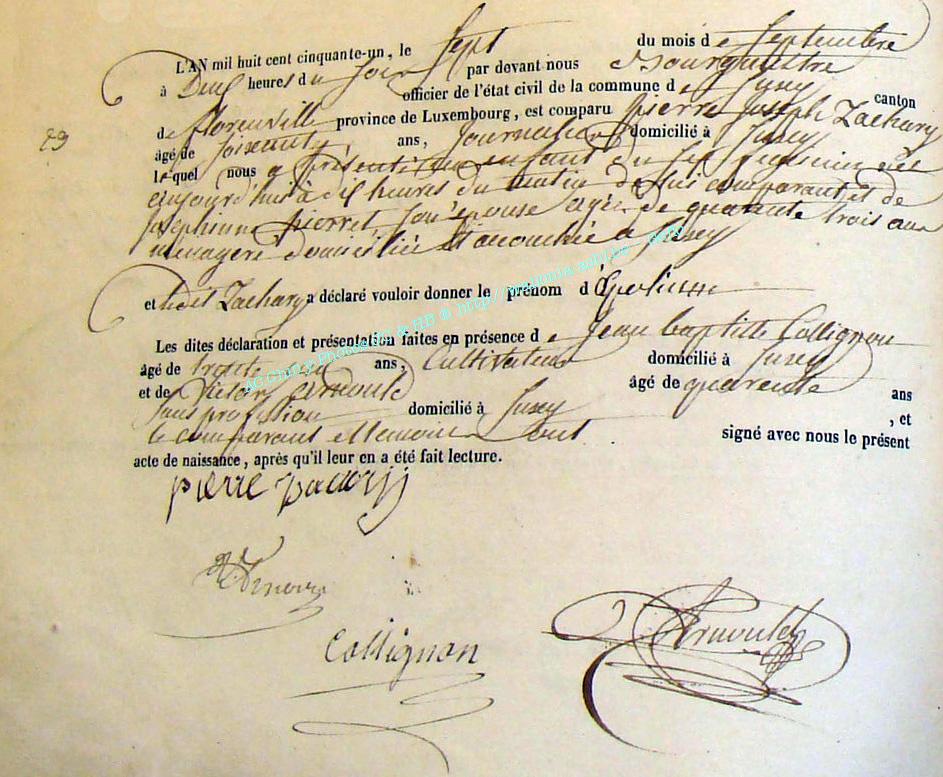 L'AN mil huit cent cinquante-un, le Sept du mois de Septembre
à Deux heures du Jour par devant nous Bourgmestre
officier de l'état civil de la commune de Jusey canton
de florenville province de Luxembourg, est comparu pierre Joseph Zachary
29
âgé de soixante ans, Journalier domicilié à Jusey
lequel nous a présenté un enfant du sexe né
aujourd'hui à dix heures du matin de lui comparant et de
Joséphinne pierret, son épouse agée de quarante trois ans
ménagère domiciliée et acouchée à Jusey
et ledit Zachary a déclaré vouloir donner le prénom d'
Les dites déclaration et présentation faites en présence de Jean baptiste Collignon
âgé de trente ans, Cultivateur domicilié à Jusey
et de Victor arnould âgé de quarante ans
sans profession domicilié à Jusey , et
le comparant et temoins sont signé avec nous le présent
acte de naissance, après qu'il leur en a été fait lecture.
pierre Zacary
Collignon
Arnould